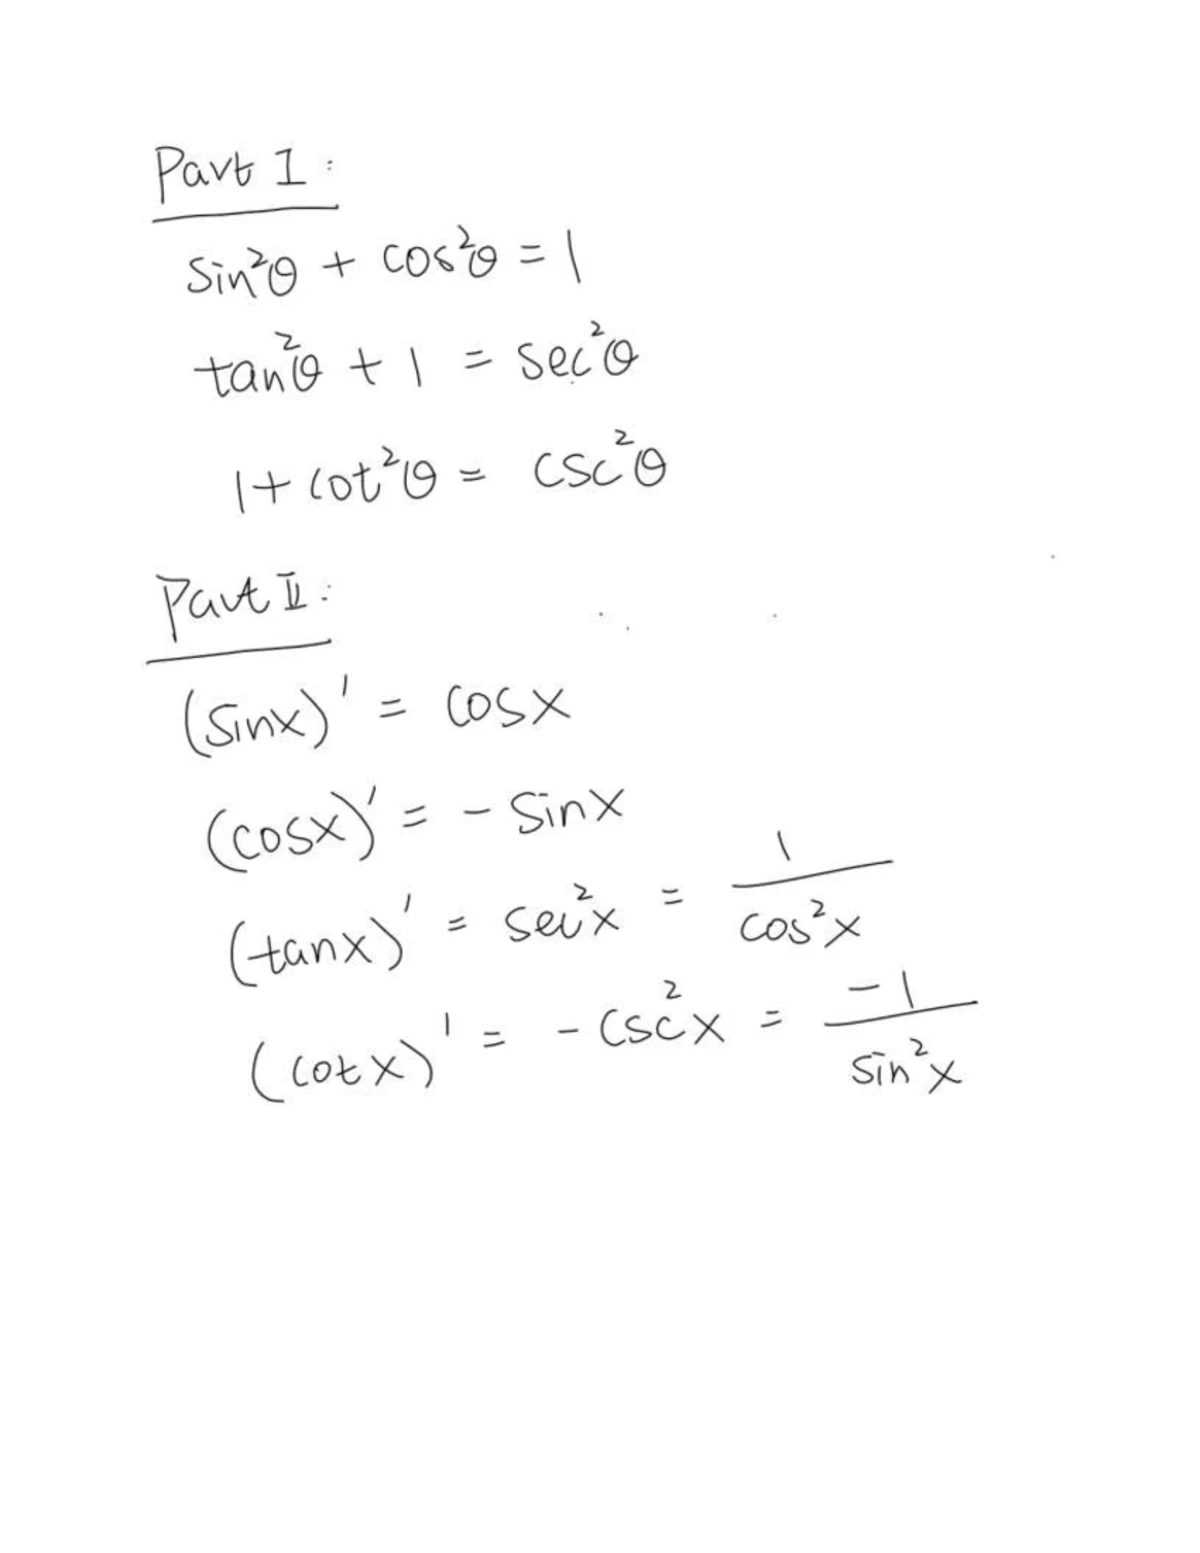 Part I:
sin²θ + cos²θ = 1
tan²θ + 1 = sec²θ
1 + cot²θ = csc²θ
Part II:
(sinx)' = cosx
(cosx)' = - sinx
(tanx)' = sec²x = 1/cos²x
(cotx)' = - csc²x = -1/sin²x